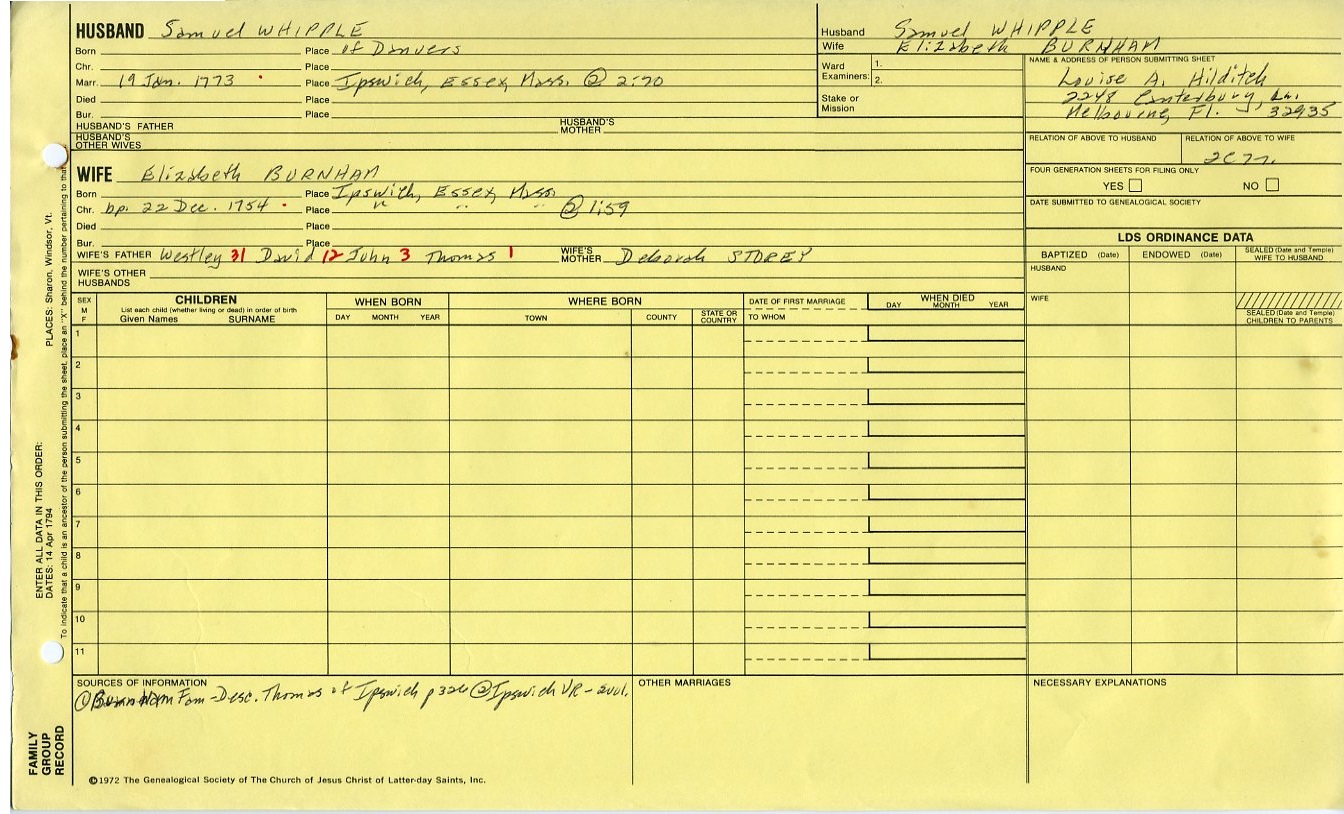 HUSBAND Samuel WHIPPLE
Born Place of Danvers
Chr. Place
Marr. 19 Jan. 1773 Place Ipswich, Essex, Mass. @ 2:70
Died Place
Bur. Place
HUSBAND'S FATHER HUSBAND'S MOTHER
HUSBAND'S OTHER WIVES
Husband Samuel WHIPPLE
Wife Elizabeth BURNHAM
Ward Examiners: 1.
2.
Stake or Mission
NAME & ADDRESS OF PERSON SUBMITTING SHEET
Louise A. Hilditch
2248 Canterbury, Ln.
Melbourne, Fl. 32935
RELATION OF ABOVE TO HUSBAND RELATION OF ABOVE TO WIFE
2C7r.
FOUR GENERATION SHEETS FOR FILING ONLY
YES NO
DATE SUBMITTED TO GENEALOGICAL SOCIETY
WIFE Elizabeth BURNHAM
Born Place Ipswich, Essex, Mass.
Chr. bp. 22 Dec. 1754 Place " " " @ 1:59
Died Place
Bur. Place
WIFE'S FATHER Westley 31 David 12 John 3 Thomas 1 WIFE'S MOTHER Deborah STOREY
WIFE'S OTHER HUSBANDS
LDS ORDINANCE DATA
BAPTIZED (Date) ENDOWED (Date) SEALED (Date and Temple) WIFE TO HUSBAND
HUSBAND
WIFE
SEALED (Date and Temple) CHILDREN TO PARENTS
SEX M F
CHILDREN
List each child (whether living or dead) in order of birth
Given Names SURNAME
WHEN BORN
DAY MONTH YEAR
WHERE BORN
TOWN COUNTY STATE OR COUNTRY
DATE OF FIRST MARRIAGE
TO WHOM
WHEN DIED
DAY MONTH YEAR
1
2
3
4
5
6
7
8
9
10
11
SOURCES OF INFORMATION
① Burnham Fam - Desc. Thomas of Ipswich p 326 @ Ipswich VR - 2vol.
OTHER MARRIAGES
NECESSARY EXPLANATIONS
©1972 The Genealogical Society of The Church of Jesus Christ of Latter-day Saints, Inc.
FAMILY GROUP RECORD
ENTER ALL DATA IN THIS ORDER:
DATES: 14 Apr 1794
PLACES: Sharon, Windsor, Vt.
To indicate that a child is an ancestor of the person submitting the sheet, place an "X" behind the number pertaining to that